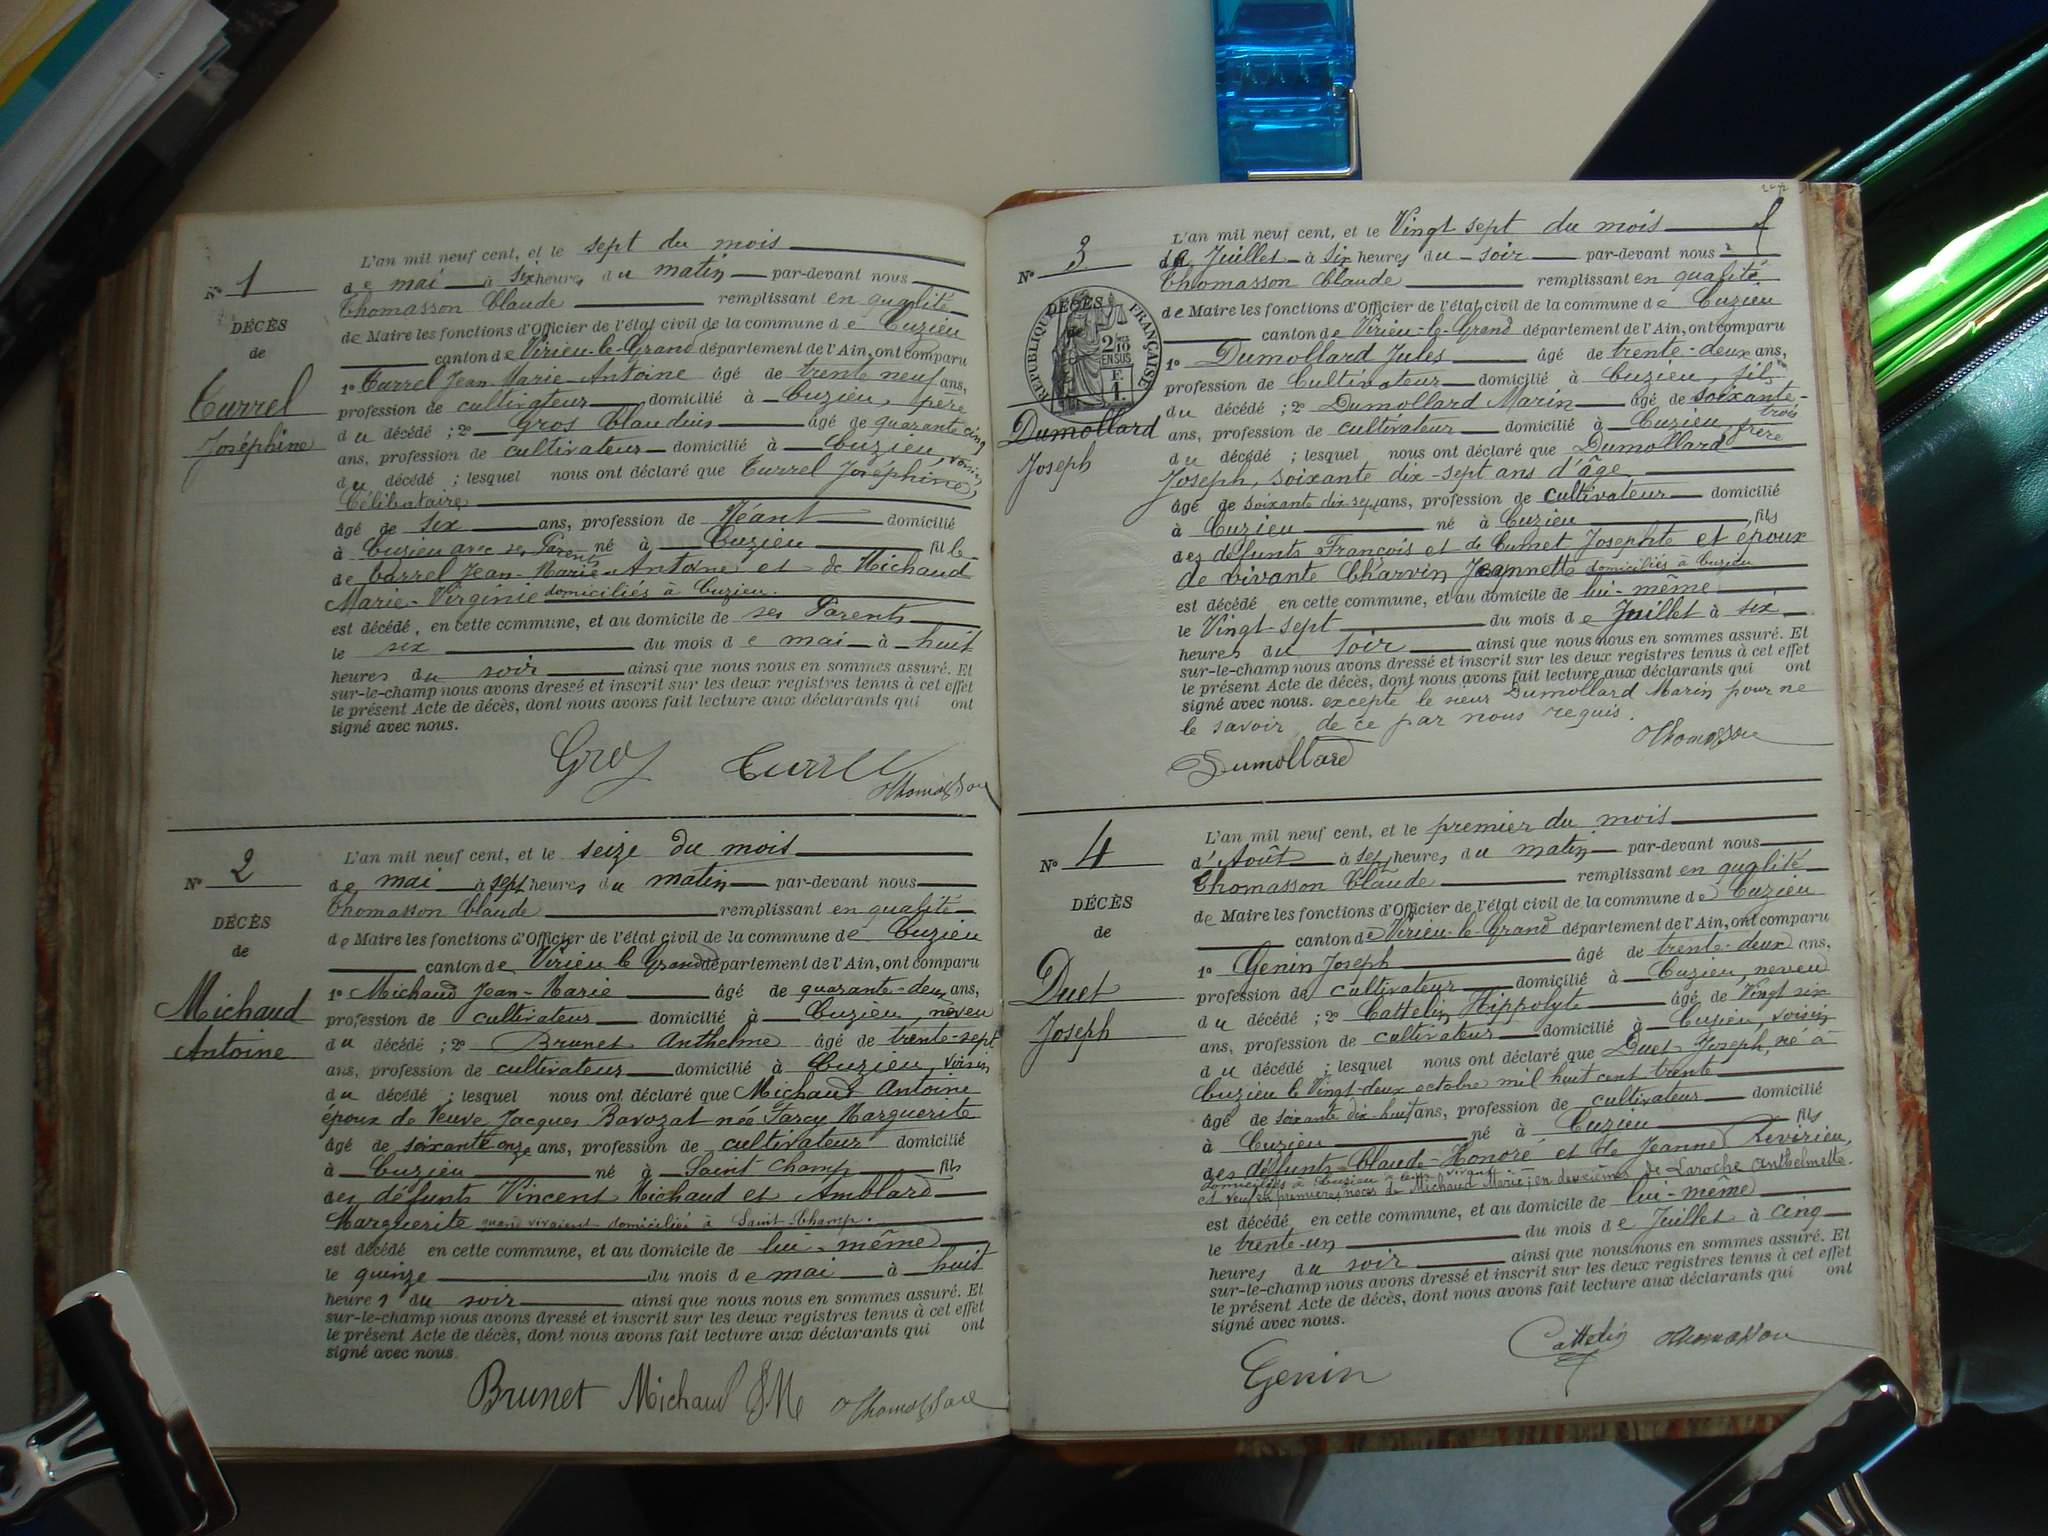 N° 1
DÉCÈS
de
Currel
Joséphine
L'an mil neuf cent, et le sept du mois
de mai à six heures du matin par-devant nous
Thomasson Claude remplissant en qualité
de Maire les fonctions d'Officier de l'état civil de la commune de Cuzieu
canton de Virieu-le-Grand département de l'Ain, ont comparu
1° Currel Jean-Marie-Antoine âgé de trente neuf ans,
profession de cultivateur domicilié à Cuzieu, père
du décédé ; 2° Gros Claudius âgé de quarante cinq
ans, profession de cultivateur domicilié à Cuzieu, voisin
du décédé ; lesquel nous ont déclaré que Currel Joséphine,
Célibataire
âgé de six ans, profession de Néant domicilié
à Cuzieu avec ses Parents né à Cuzieu fille
de Currel Jean-Marie-Antoine et de Michaud
Marie-Virginie domiciliés à Cuzieu.
est décédé, en cette commune, et au domicile de ses Parents
le six du mois de mai à huit
heures du soir ainsi que nous nous en sommes assuré. Et
sur-le-champ nous avons dressé et inscrit sur les deux registres tenus à cet effet
le présent Acte de décès, dont nous avons fait lecture aux déclarants qui ont
signé avec nous.
Gros Currel Thomasson
N° 2
DÉCÈS
de
Michaud
Antoine
L'an mil neuf cent, et le seize du mois
de mai à sept heures du matin par-devant nous
Thomasson Claude remplissant en qualité
de Maire les fonctions d'Officier de l'état civil de la commune de Cuzieu
canton de Virieu le Grand département de l'Ain, ont comparu
1° Michaud Jean-Marie âgé de quarante-deux ans,
profession de cultivateur domicilié à Cuzieu, neveu
du décédé ; 2° Brunet Anthelme âgé de trente-sept
ans, profession de cultivateur domicilié à Cuzieu, voisin
du décédé ; lesquel nous ont déclaré que Michaud Antoine
époux de Veuve Jacques Bavozat née Farcy Marguerite
âgé de soixante onze ans, profession de cultivateur domicilié
à Cuzieu né à Saint Champ fils
des défunts Vincent Michaud et Amblard
Marguerite quand vivaient domiciliés à Saint-Champ.
est décédé en cette commune, et au domicile de lui-même
le quinze du mois de mai à huit
heures du soir ainsi que nous nous en sommes assuré. Et
sur-le-champ nous avons dressé et inscrit sur les deux registres tenus à cet effet
le présent Acte de décès, dont nous avons fait lecture aux déclarants qui ont
signé avec nous.
Brunet Michaud JM Thomasson
N° 3
DÉCÈS
de
RÉPUBLIQUE FRANÇAISE
2/10
EN SUS
Dumollard
Joseph
L'an mil neuf cent, et le Vingt sept du mois
de Juillet à six heures du soir par-devant nous
Thomasson Claude remplissant en qualité
de Maire les fonctions d'Officier de l'état civil de la commune de Cuzieu
canton de Virieu-le-Grand département de l'Ain, ont comparu
1° Dumollard Jules âgé de trente-deux ans,
profession de Cultivateur domicilié à Cuzieu, fils
du décédé ; 2° Dumollard Marin âgé de soixante-trois
ans, profession de cultivateur domicilié à Cuzieu, frère
du décédé ; lesquel nous ont déclaré que Dumollard
Joseph, soixante dix-sept ans d'âge
âgé de soixante dix-sept ans, profession de cultivateur domicilié
à Cuzieu né à Cuzieu fils
des défunts François et de Cumet Josephte et époux
de vivante Charvin Jeannette domiciliés à Cuzieu
est décédé en cette commune, et au domicile de lui-même
le Vingt-sept du mois de Juillet à six
heures du soir ainsi que nous nous en sommes assuré. Et
sur-le-champ nous avons dressé et inscrit sur les deux registres tenus à cet effet
le présent Acte de décès, dont nous avons fait lecture aux déclarants qui ont
signé avec nous. excepté le sieur Dumollard Marin pour ne
le savoir de ce par nous requis.
Thomasson
Dumollard
N° 4
DÉCÈS
de
Duet
Joseph
L'an mil neuf cent, et le premier du mois
d'Août à sept heures du matin par-devant nous
Thomasson Claude remplissant en qualité
de Maire les fonctions d'Officier de l'état civil de la commune de Cuzieu
canton de Virieu-le-Grand département de l'Ain, ont comparu
1° Genin Joseph âgé de trente-deux ans,
profession de cultivateur domicilié à Cuzieu, neveu
du décédé ; 2° Cattelin Hippolyte âgé de Vingt six
ans, profession de cultivateur domicilié à Cuzieu, voisin
du décédé ; lesquel nous ont déclaré que Duet Joseph, né à
Cuzieu le Vingt-deux octobre mil huit cent trente
âgé de soixante dix-huit ans, profession de cultivateur domicilié
à Cuzieu né à Cuzieu fils
des défunts Claude-Honoré et de Jeanne Revirieu,
domiciliés à Cuzieu vivant
et veuf en premières noces de Michaud Marie; en deuxièmes de Laroche Anthelmette.
est décédé en cette commune, et au domicile de lui-même
le trente-un du mois de Juillet à cinq
heures du soir ainsi que nous nous en sommes assuré. Et
sur-le-champ nous avons dressé et inscrit sur les deux registres tenus à cet effet
le présent Acte de décès, dont nous avons fait lecture aux déclarants qui ont
signé avec nous.
Cattelin Thomasson
Genin